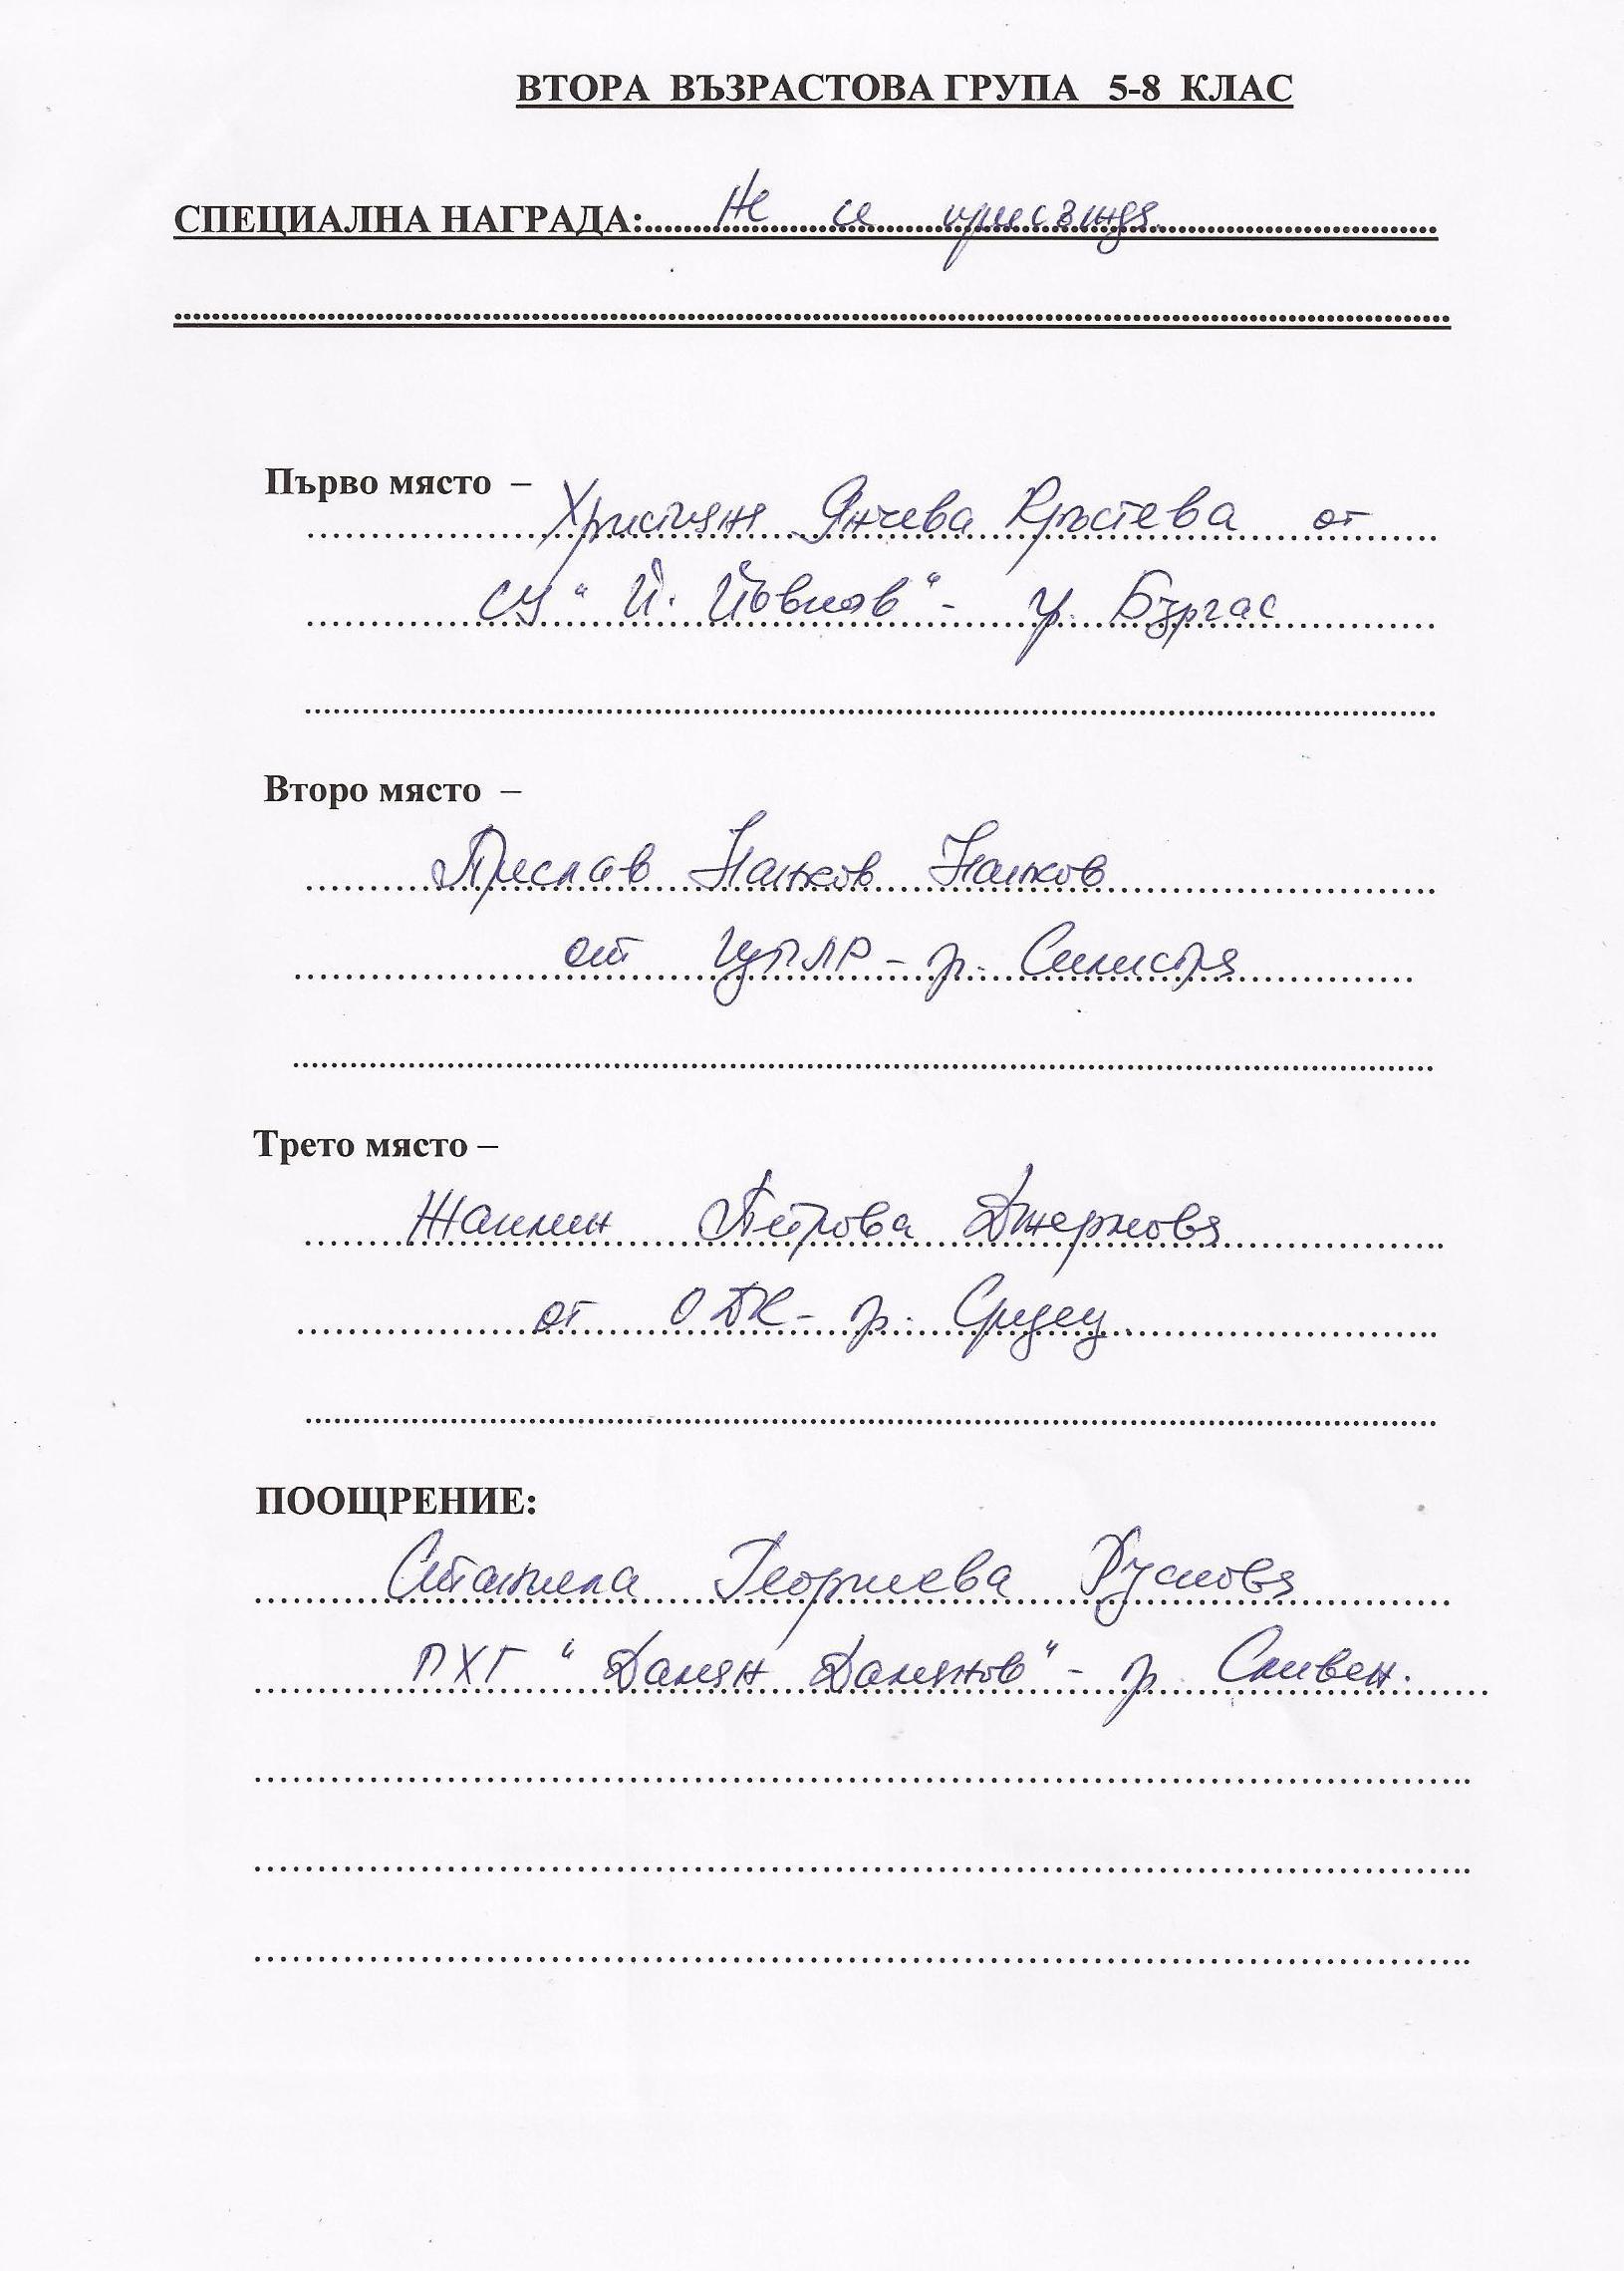 ВТОРА ВЪЗРАСТОВА ГРУПА 5-8 КЛАС
СПЕЦИАЛНА НАГРАДА: Не се присъжда.
Първо място –
Християн Янчева Кръстева от
СУ "Й. Йовков" - гр. Бургас
Второ място –
Преслав Панков Панков
от ЦПЛР - гр. Силистра
Трето място –
Жаклин Петрова Джеркова
от ОДК - гр. Средец.
ПООЩРЕНИЕ:
Станила Георгиева Русковa
ПХГ "Дамян Дамянов" - гр. Сливен.